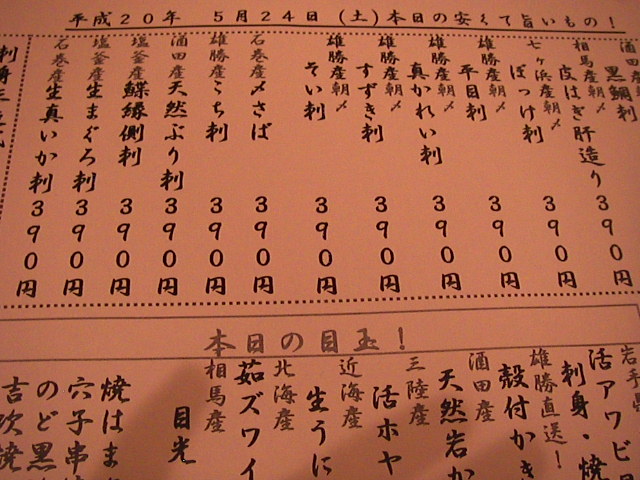 平成20年 5月24日(土)本日の安くて旨いもの!
酒田産朝〆
黒鯛刺
390円
相馬産朝〆
皮はぎ肝造り
390円
七ヶ浜産朝〆
ほっけ刺
390円
雄勝産朝〆
平目刺
390円
雄勝産朝〆
真かれい刺
390円
雄勝産朝〆
すずき刺
390円
雄勝産朝〆
そい刺
390円
石巻産〆さば
390円
雄勝産こち刺
390円
酒田産天然ぶり刺
390円
塩釜産鰈縁側刺
390円
塩釜産生まぐろ刺
390円
石巻産生真いか刺
390円
刺身三
本日の目玉!
岩手県
活アワビ
刺身・焼
雄勝直送!
殻付かき
酒田産
天然岩か
三陸産
活ホヤ
近海産
生うに
北海産
茹ズワイ
相馬産
目光
焼はま
穴子串
のど黒
吉次焼